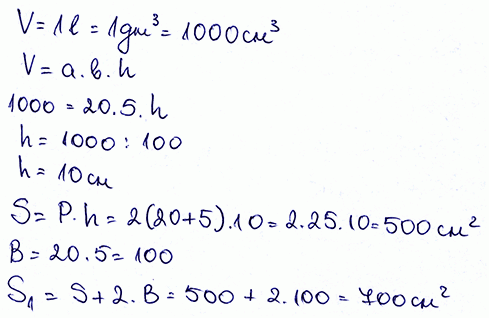 V = 1l = 1gm³ = 1000см³
V = a.b.h
1000 = 20.5.h
h = 1000 : 100
h = 10см
S = P.h = 2(20+5).10 = 2.25.10 = 500см²
B = 20.5 = 100
S₁ = S + 2.B = 500 + 2.100 = 700см²